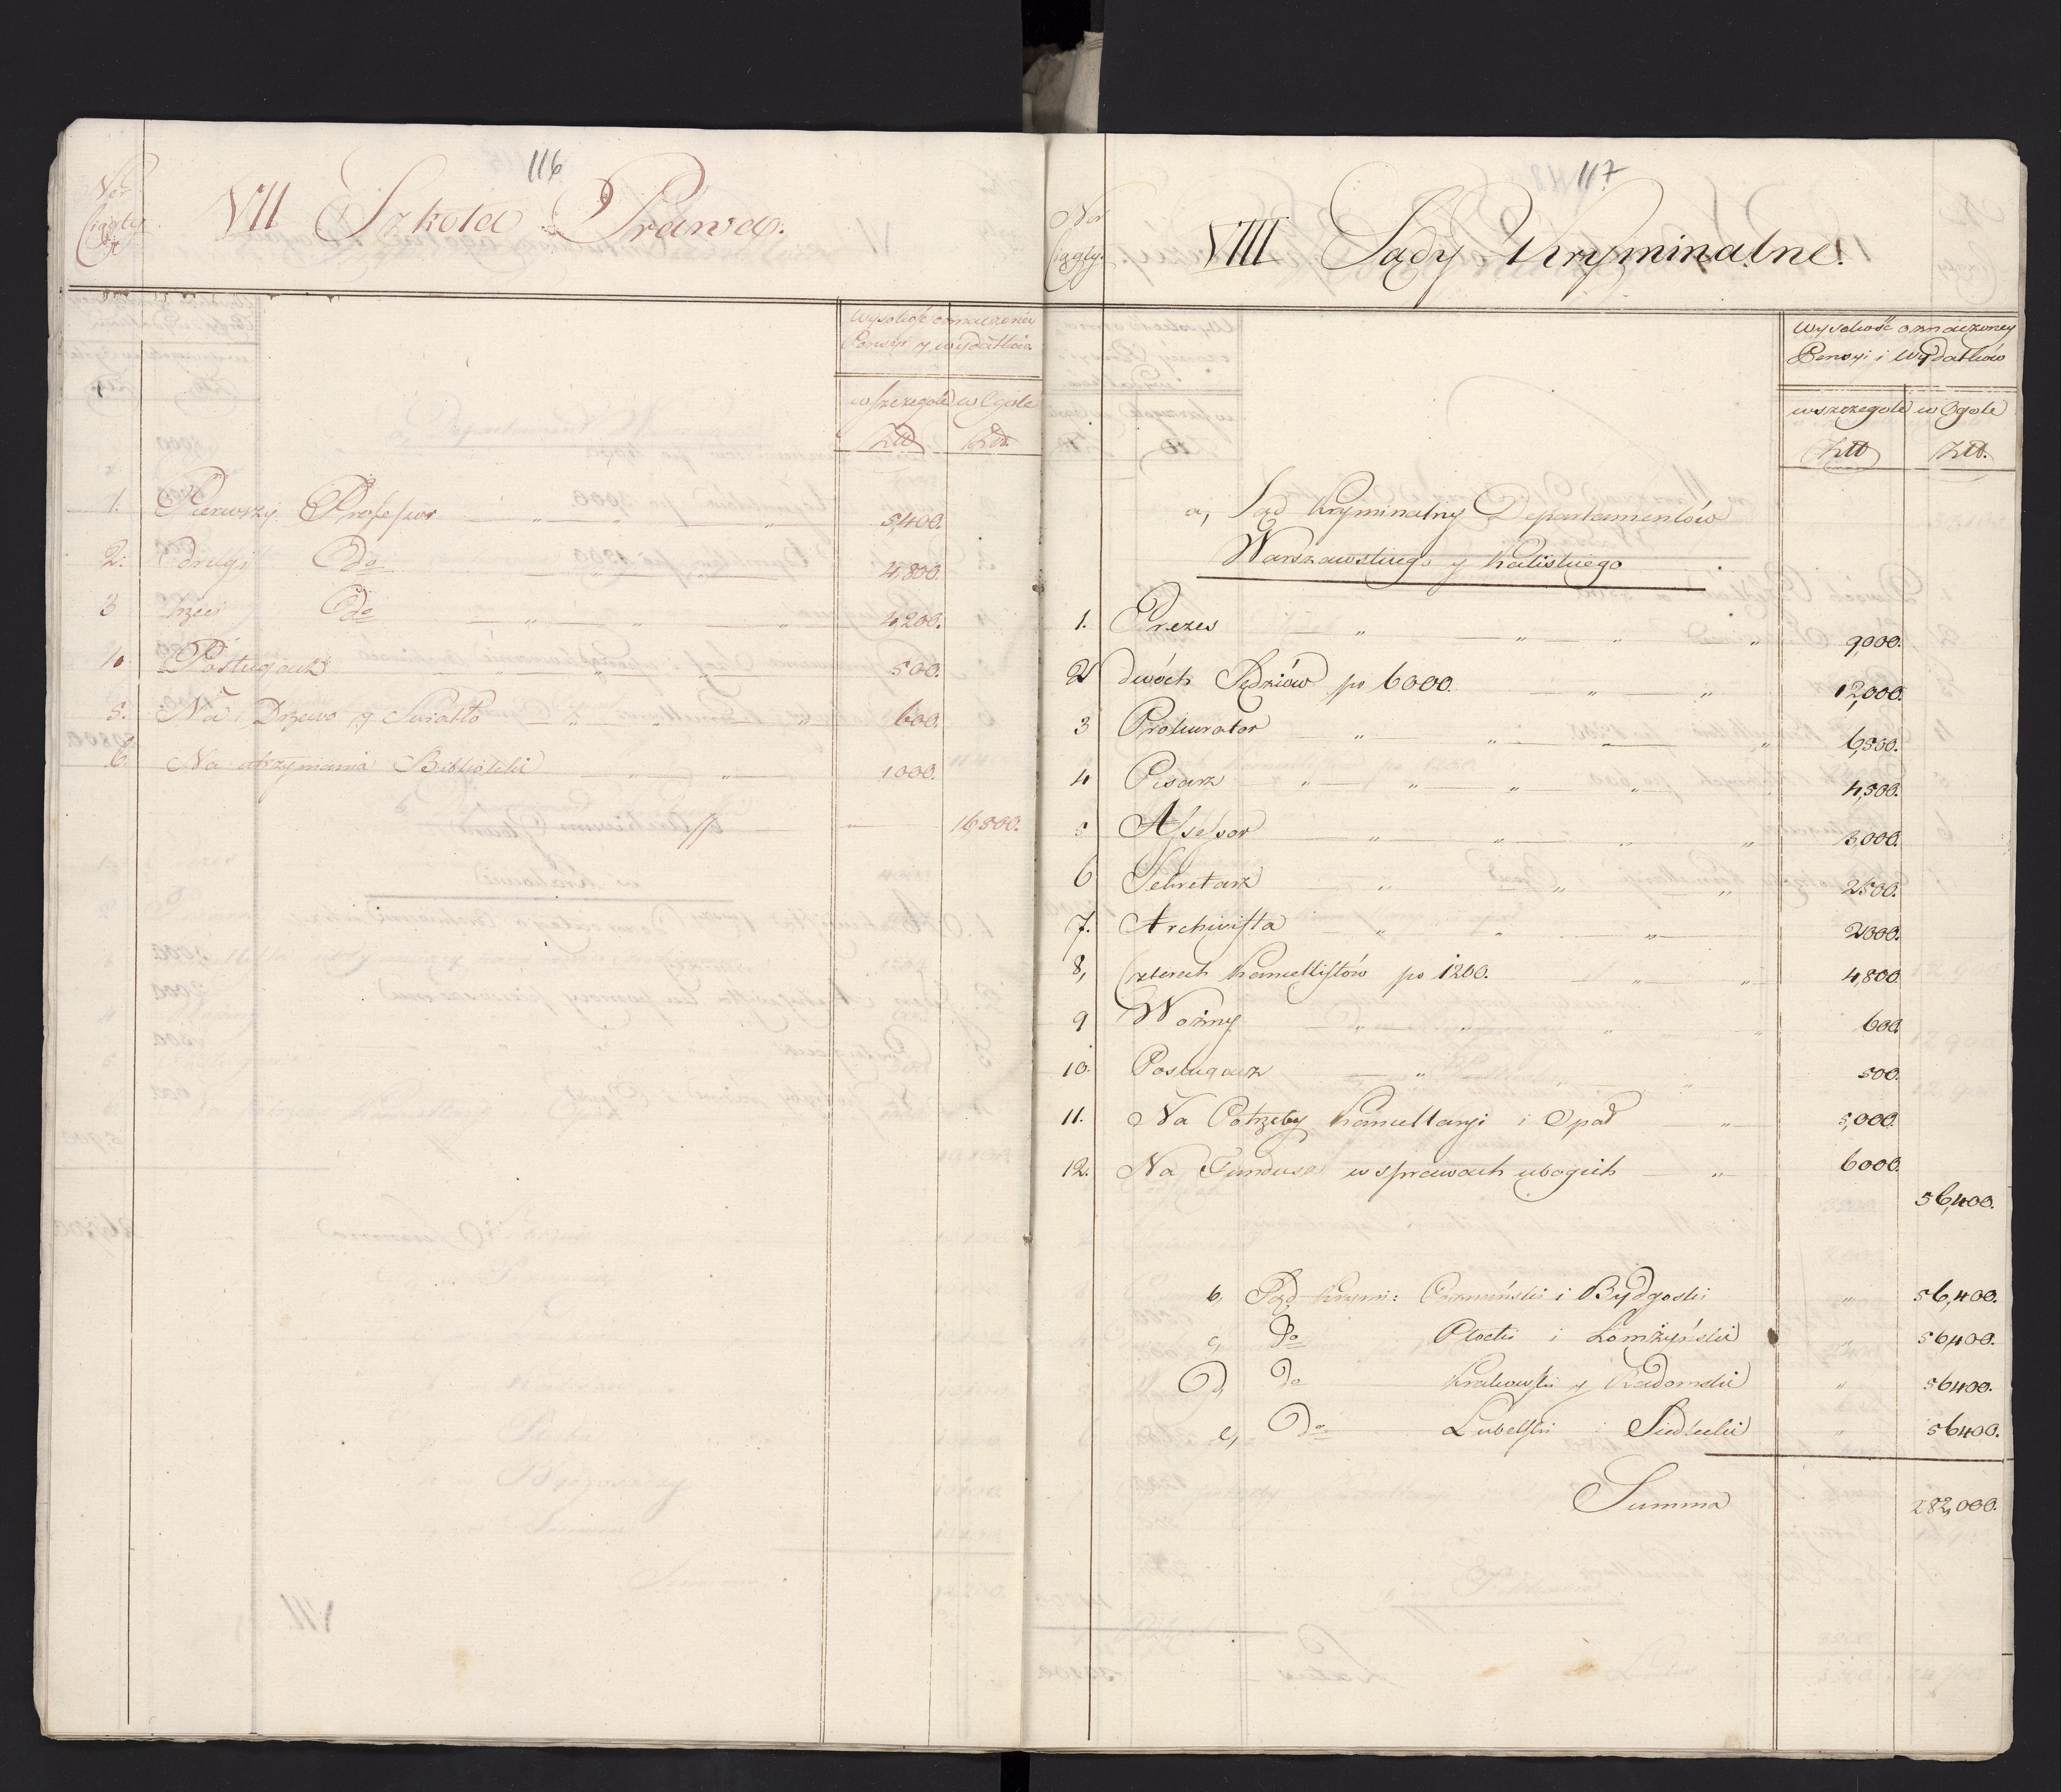 116
Ner
ciągły
VII Szkoła Prawa.
Wysokość oznaczoney
Pensyi y wydatków
w szczegole w Ogole
Złł Złł
1. Pierwszy Professor — " — " — " 5,400.
2. drugi Do — " — " — 4,800.
3 trzeci Do — " — " — " 4,200.
4. Posługacz — " — " — 500.
5. Na Drzewo y Swiatło — " — " — " 600.
6. Na utrzymania Biblioteki — " — " — 1000.
" — 16,500.
117
Ner
ciągły.
VIII Sądy Kryminalne.
Wysokość oznaczoney
Pensyi i Wydatków
w szczegole w Ogole
Złł Złł.
a, Sąd Kryminalny Departamentów
Warszawskiego y Kaliskiego
1. Prezes — " — " — " — " 9,000.
2 dwóch Sędziów po 6000. — " — " 12,000.
3 Prokurator — " — " — " — " 6,500.
4 Pisarz — " — " — " — " 4,500.
5 Assessor — " — " — " — " 3,000.
6 Sekretarz — " — " — " 2500.
7. Archivista — " — " — " — 2000.
8, czterech Kancellistów po 1200. — " — " 4,800
9 Woźny — " — " — " — " 600
10. Posługacz — " — " — " 500.
11. Na Potrzeby Kancellaryi i Opał — " — 5,000.
12. Na Fundusz w sprawach ubogich — " — 6000.
56,400.
b, Sąd Krymi: Poznański i Bydgoski " 56,400.
c, Do Płocki i Łomżyński " 56,400.
d, Do Krakowski y Radomski " 56400.
e, Do Lubelski i Siedlecki " 56400.
Summa 282,000.